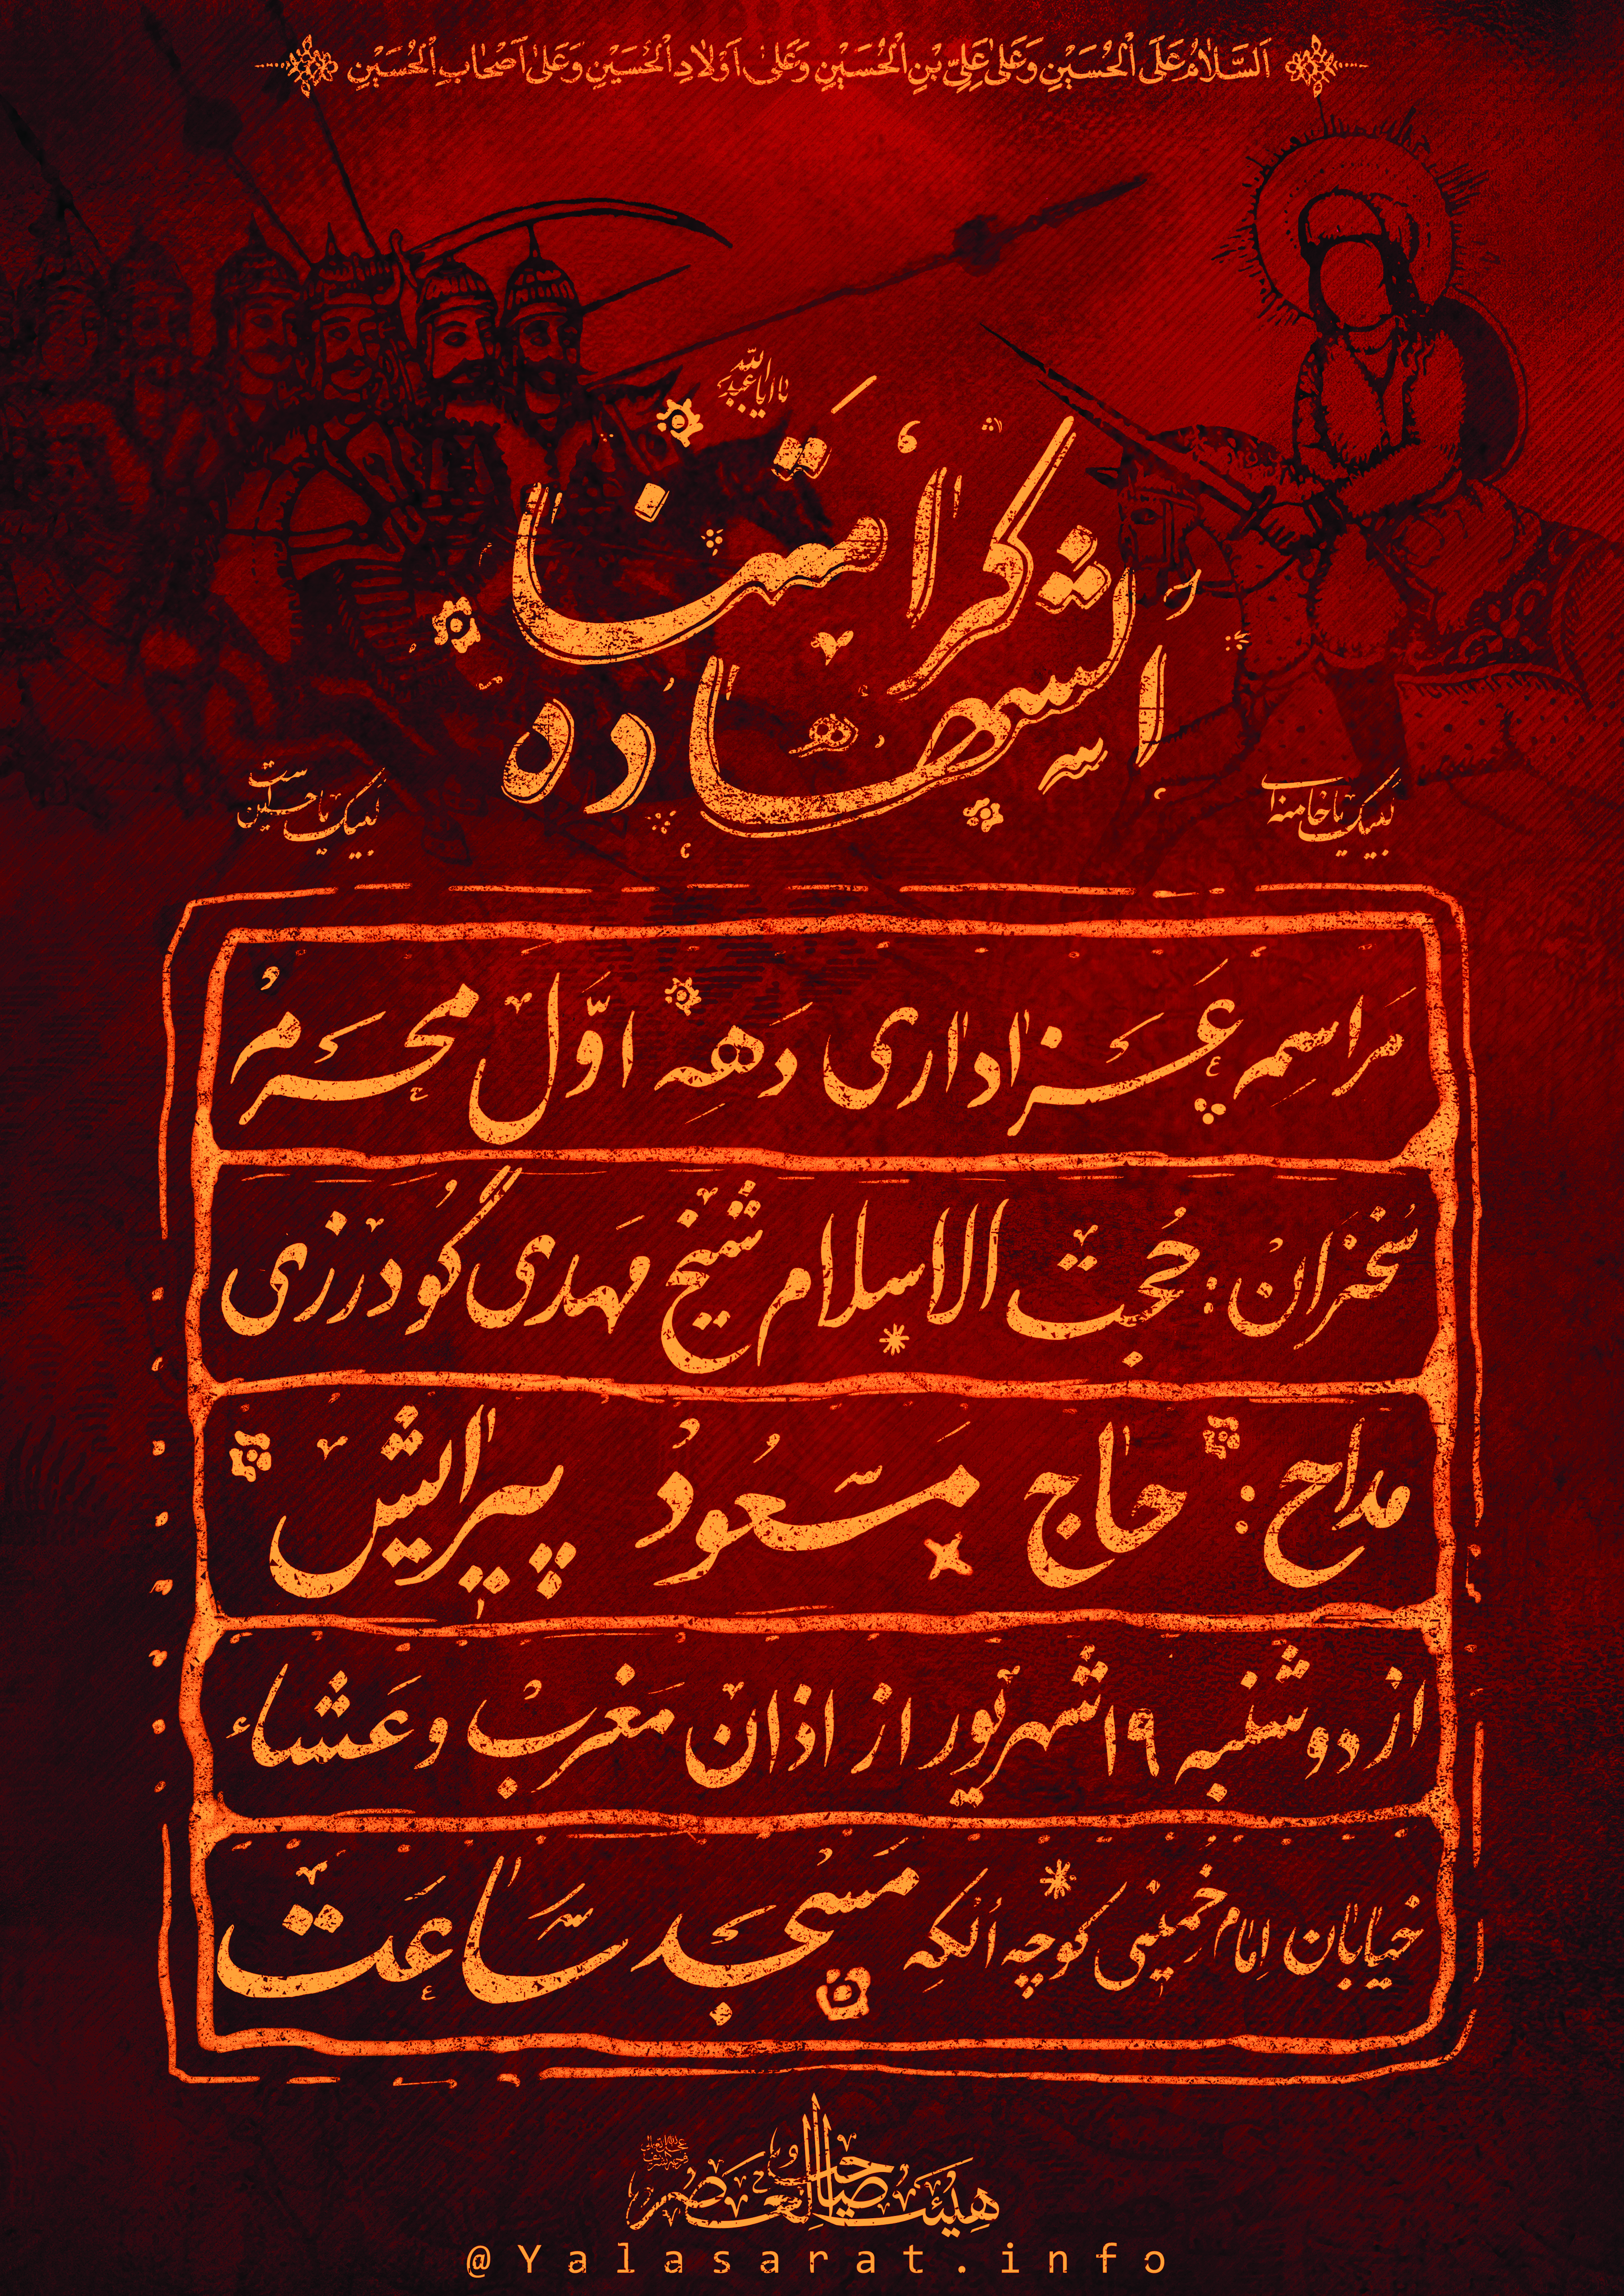 اَلسَّلامُ عَلَی الْحُسَیْنِ وَ عَلیٰ عَلِیِّ بْنِ الْحُسَیْنِ وَ عَلیٰ اَوْلادِ الْحُسَیْنِ وَ عَلیٰ اَصْحابِ الْحُسَیْنِ
یا اباعبدالله
کرامتنا
الشهاده
لبیک یا خامنه‌ای
لبیک یا حسین است
مراسم عزاداری دهه اوّل محرم
سخنران : حجت الاسلام شیخ مهدی گودرزی
مداح : حاج مسعود پیرایش
از دوشنبه ۱۹ شهریور از اذان مغرب و عشاء
خیابان امام خمینی کوچه الکه مسجد ساعت
هیئت صاحب العصر
@Yalasarat.info